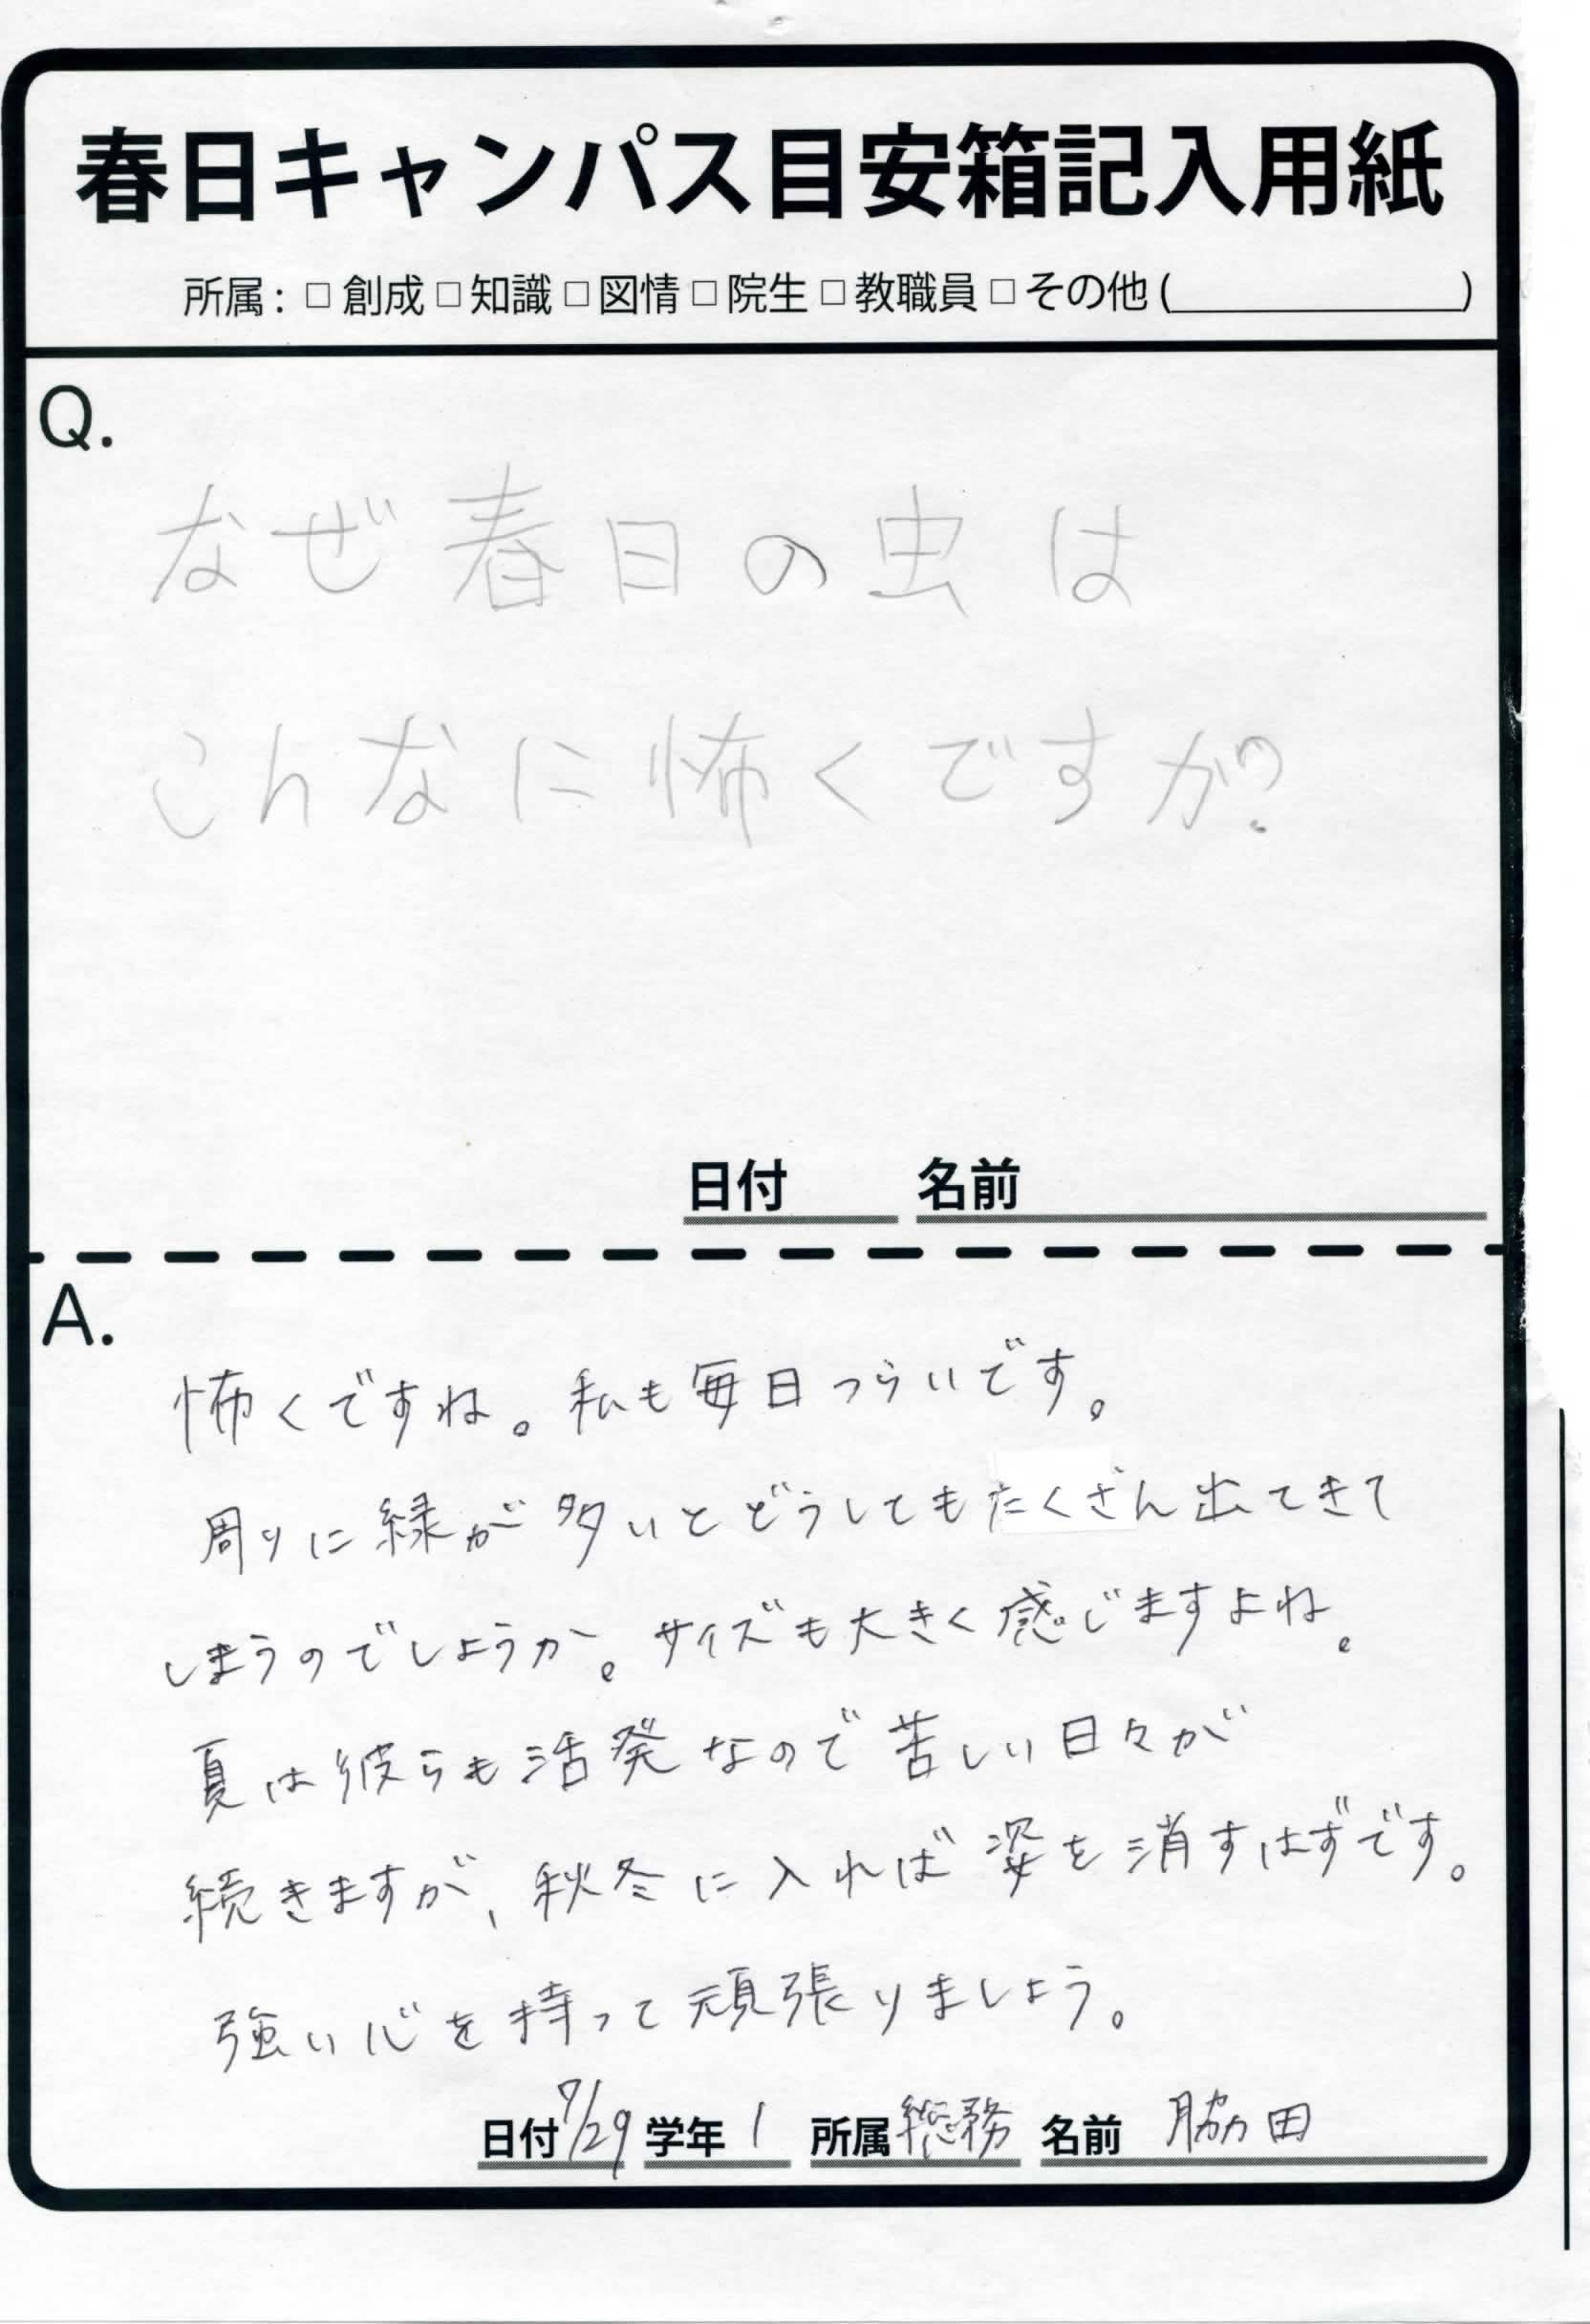 春日キャンパス目安箱記入用紙
所属：□ 創成 □ 知識 □ 図情 □ 院生 □ 教職員 □ その他 (＿＿＿＿＿＿)
Q.
なぜ春日の虫は
こんなに怖くですか?
日付 名前
A.
怖くですね。私も毎日つらいです。
周りに緑が多いとどうしてもたくさん出てきて
しまうのでしょうか。サイズも大きく感じますよね。
夏は彼らも活発なので苦しい日々が
続きますが、秋冬に入れば姿を消すはずです。
強い心を持って頑張りましょう。
日付 7/29 学年 1 所属 総務 名前 脇田